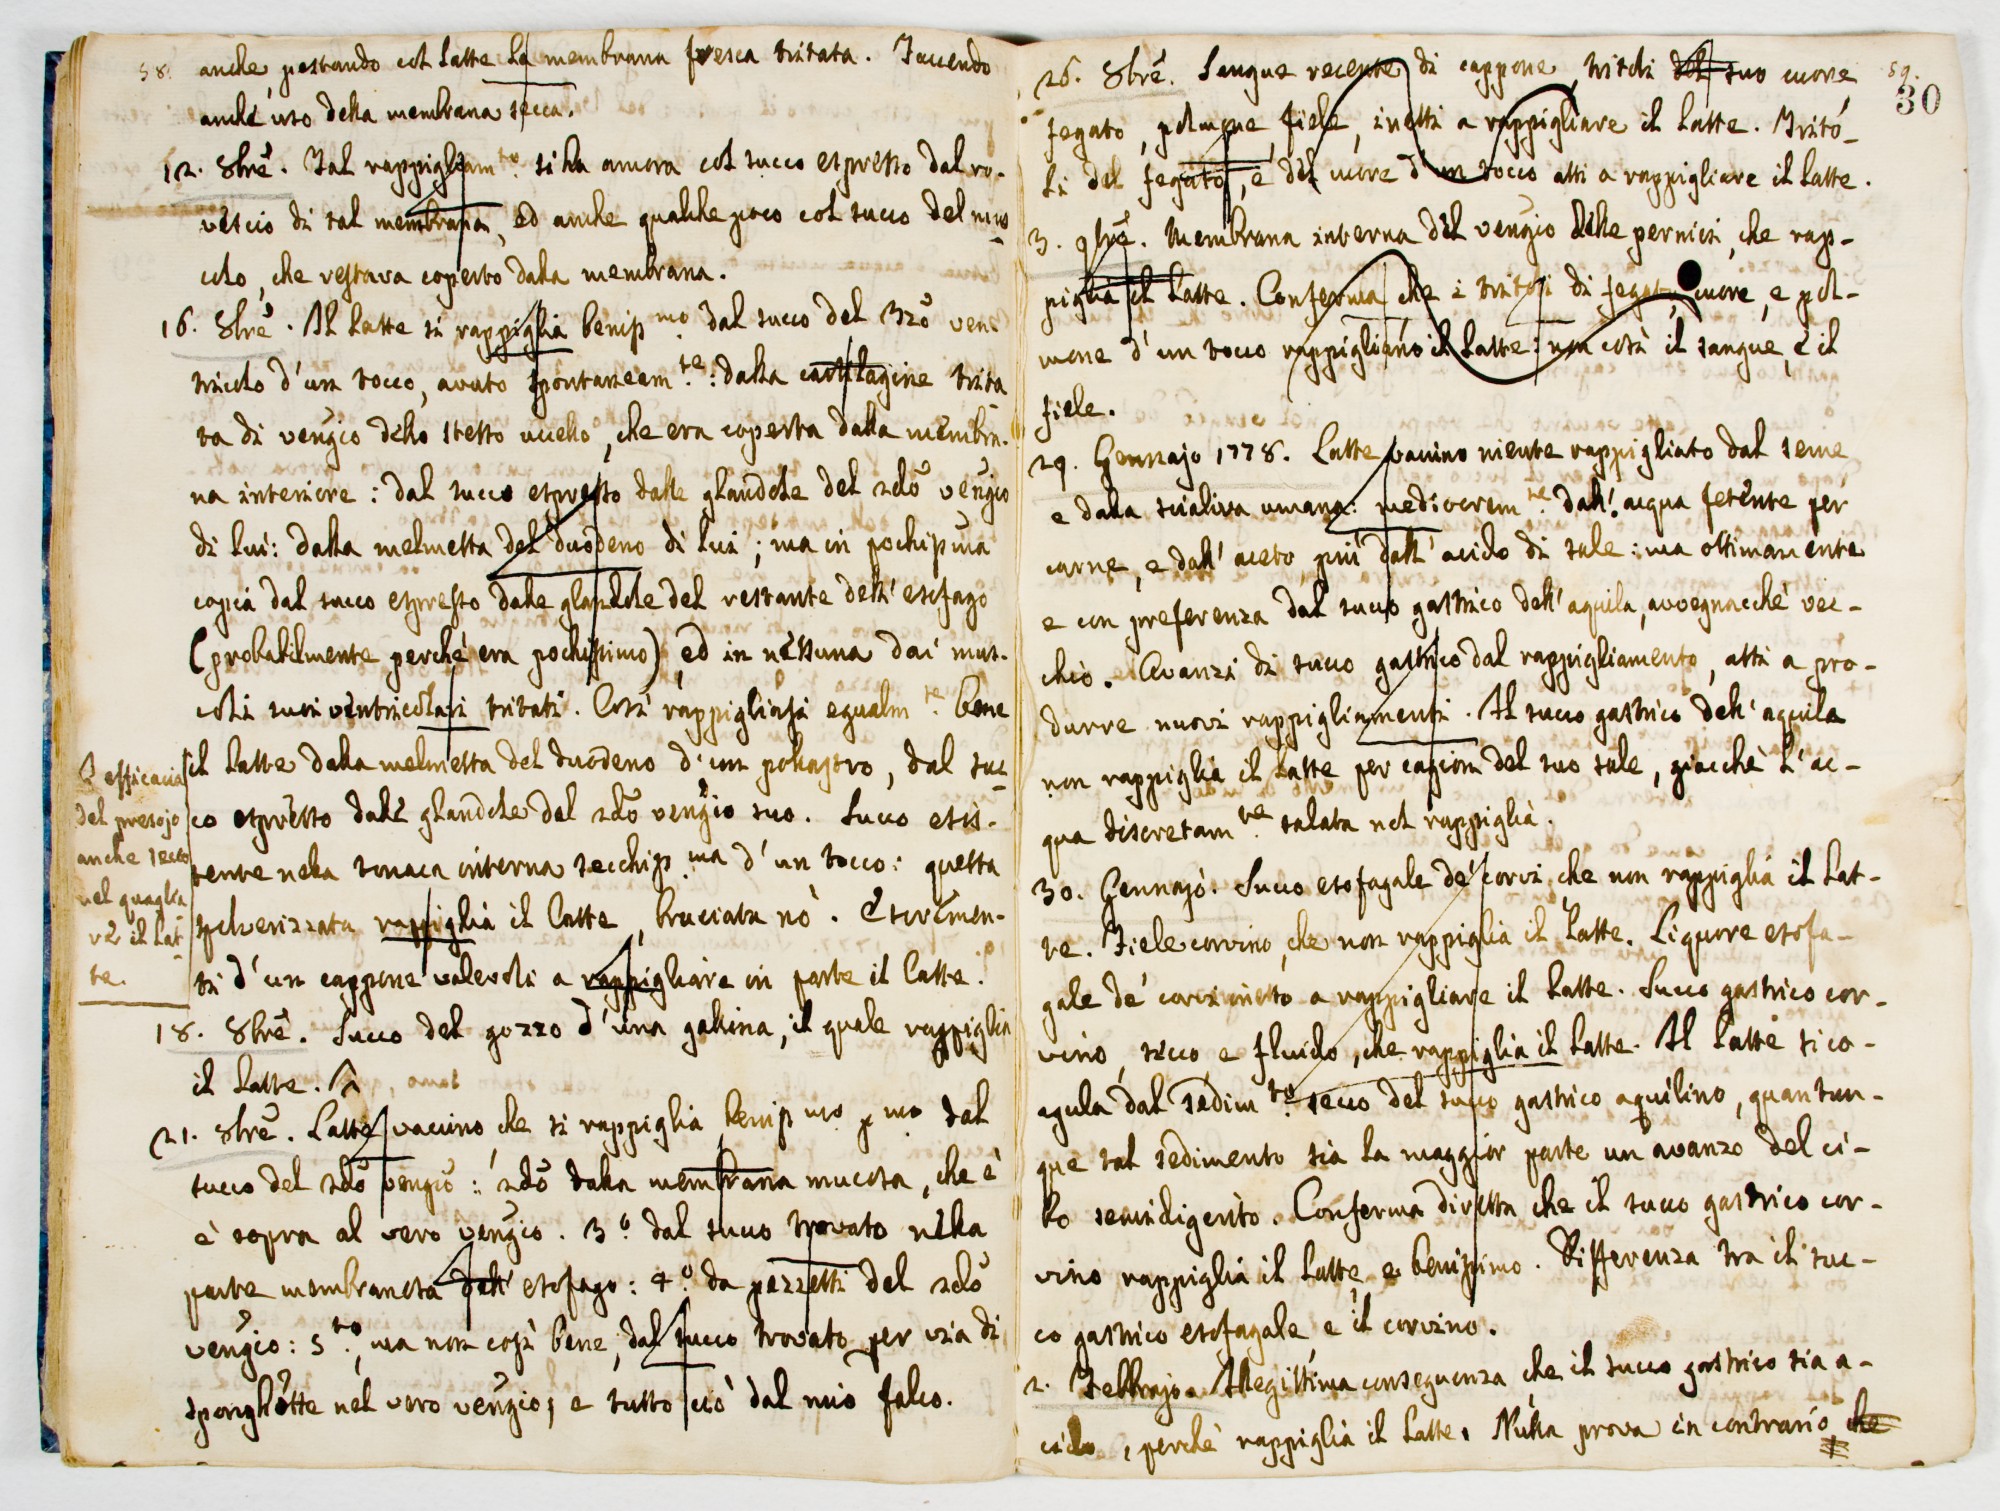 58.
anche, pestando col latte la membrana fresca tritata. Facendo
anche uso della membrana secca.
12. 8bré. Tal rappigliam.to si ha ancora col succo espresso dal ro-
vescio di tal membrana, ed anche qualche poco col succo del mus
colo, che restava coperto dalla membrana.
16. 8bré. Il latte si rappiglia beniss.mo dal succo del 3zo ven-
tricolo d'un tocco, avuto spontaneam.te: dalla cartilagine trita
ta di vengio dello stesso uccello, che era coperta dalla membra-
na interiore: dal succo espresso dalle glandole del 2do vengio
di lui: dalla melmetta del duodeno di lui; ma in pochiss.ma
copia dal succo espresso dalle glandole del restante dell'esofago
(probabilmente perché era pochissimo) ed in nessuna dai mus-
coli suoi ventricolari tritati. Così rappigliasi egualm.te bene
il latte dalla melmetta del duodeno d'un pollastro, dal suc
co espresso dalle glandole del 2do vengio suo. Succo esis-
tente nella tonaca interna secchiss.ma d'un tocco: questa
spolverizzata rappiglia il latte, bruciata nò. Escremen-
ti d'un cappone valevoli a rappigliare in parte il latte.
L'efficacia
del presojo
anche secco
nel quaglia
re il lat-
te.
18. 8bré. Succo del gozzo d'una gallina, il quale rappiglia
il latte.
21. 8bré. Latte vaccino, che si rappiglia beniss.mo p.mo dal
succo del 2do vengio: 2do dalla membrana mucosa, che è
è sopra al vero vengio. 3.o dal succo trovato nella
parte membranosa dell'esofago: 4.o da pezzetti del 2do
vengio: 5.to, ma non così bene, dal succo trovato per via di
spenghette nel vero vengio; e tutto ciò dal mio falco.
59.
30
26. 8bré. Sangue recente di cappone, tritoli del suo cuore,
fegato, polmone, fiele, inetti a rappigliare il latte. Trito-
li del fegato, e del cuore d'un tocco atti a rappigliare il latte.
3. 9bré. Membrana interna del vengio delle pernici, che rap-
piglia il latte. Conferma che i tritoli di fegato, cuore, e pol-
mone d'un tocco rappigliano il latte: non così il sangue, e il
fiele.
29. Gennajo 1778. Latte vaccino niente rappigliato dal seme
e dalla scialiva umana: mediocrem.te dall'acqua fetente per
carne, e dall'aceto, più dall'acido di sale: ma ottimamente
e con preferenza dal succo gastrico dell'aquila, avvegnacché vec-
chio. Avanzi di succo gastrico dal rappigliamento, atti a pro-
durre nuovi rappigliamenti. Il succo gastrico dell'aquila
non rappiglia il latte per cagion del suo sale, giacchè l'ac-
qua discretam.te salata nol rappiglia.
30. Gennajo. Succo esofagale de' corvi, che non rappiglia il lat-
te. Fiele corvino, che non rappiglia il latte. Liquore esofa-
gale de' corvi inetto a rappigliare il latte. Succo gastrico cor-
vino, secco, e fluido, che rappiglia il latte. Il latte si co-
agula dal sedim.to secco del succo gastrico aquilino, quantun-
que tal sedimento sia la maggior parte un avanzo del ci-
bo semidigerito. Conferma diretta che il succo gastrico cor-
vino rappiglia il latte, e benissimo. Differenza tra il suc-
co gastrico esofagale, e il corvino.
2. Febbrajo. Illegittima conseguenza, che il succo gastrico sia a-
cido, perché rappiglia il latte. Nulla prova in contrario che